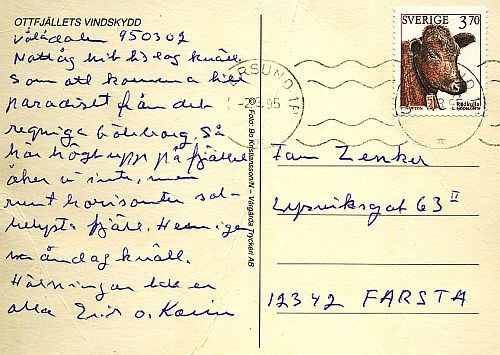 OTTFJÄLLETS VINDSKYDD
Vålådalen 950302
Nattåg hit tisdag kväll.
Som att komma till
paradiset från det
regniga Göteborg. Så
här högt upp på fjället
åker vi inte, men
runt horisonten sol-
belysta fjäll. Hem igen
söndag kväll.
Hälsningar till er
alla Erik o. Karin
Foto: Bo Kristiansson/N – Vårgårda Tryckeri AB
ERSUND
-2.3.95
SVERIGE 3,70
Rödkulla
Fam Zenker
Lysviksgat 63 II
12342 FARSTA